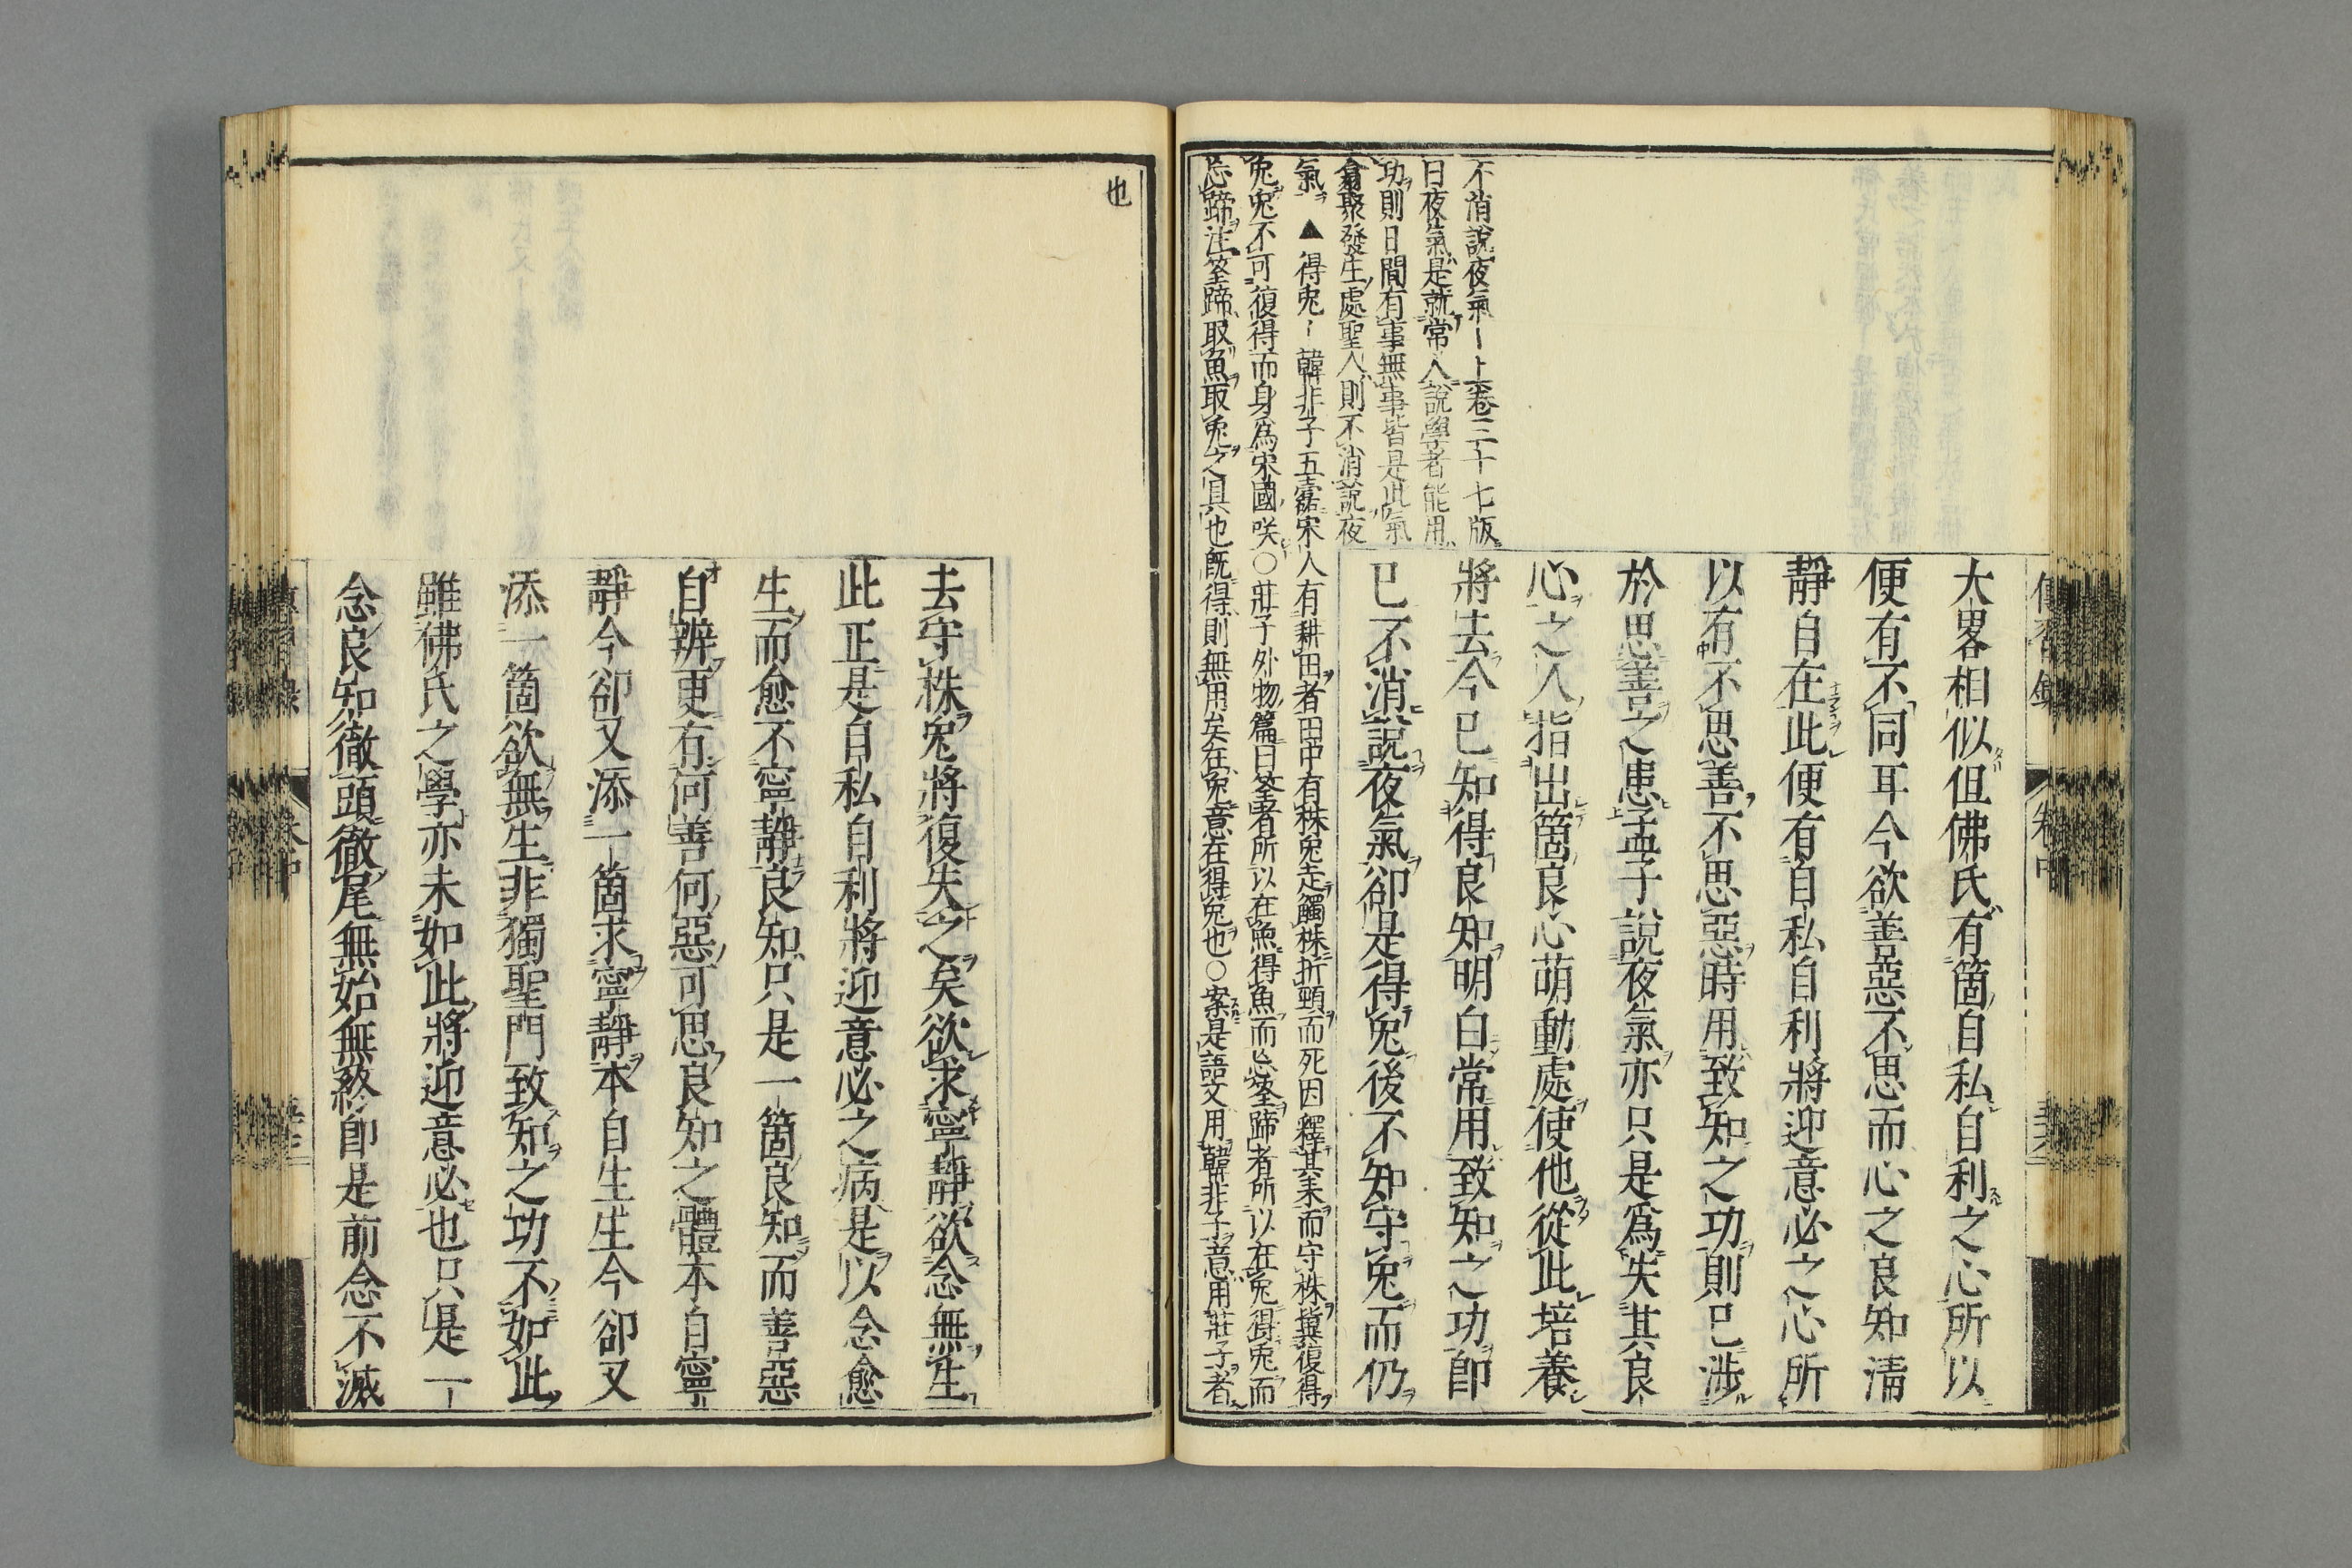 大畧相似但佛氏有箇自私自利之心所以
便有不同耳今欲善惡不思而心之良知淸
靜自在此便有自私自利將迎意必之心所
以有不思善不思惡時用致知之功則已涉
於思善之患孟子說夜氣亦只是爲失其良
心之人指出箇良心萌動處使他從此培養
將去今已知得良知明白常用致知之功卽
已不消說夜氣卻是得兔後不知守兔而仍
不消說夜氣上卷三十七版
曰夜氣是就常人說學者能用
功則日間有事無事皆是此氣
翕聚發生處聖人則不消說夜
氣 ▲得兔韓非子五蠹宋人有耕田者田中有株兔走觸株折頸而死因釋其耒而守株冀復得
兔兔不可復得而身爲宋國咲○莊子外物篇曰筌者所以在魚得魚而忘筌蹄者所以在兔得兔而
忘蹄注筌蹄取魚取兔之具也旣得則無用矣在兔意在得兔也○案是語文用韓非子意用莊子者
也
去守株兔將復失之矣欲求寧靜欲念無生
此正是自私自利將迎意必之病是以念愈
生而愈不寧靜良知只是一箇良知而善惡
自辨更有何善何惡可思良知之體本自寧
靜今卻又添一箇求寧靜本自生生今卻又
添一箇欲無生非獨聖門致知之功不如此
雖佛氏之學亦未如此將迎意必也只是一
念良知徹頭徹尾無始無終卽是前念不滅
傳習錄 卷中